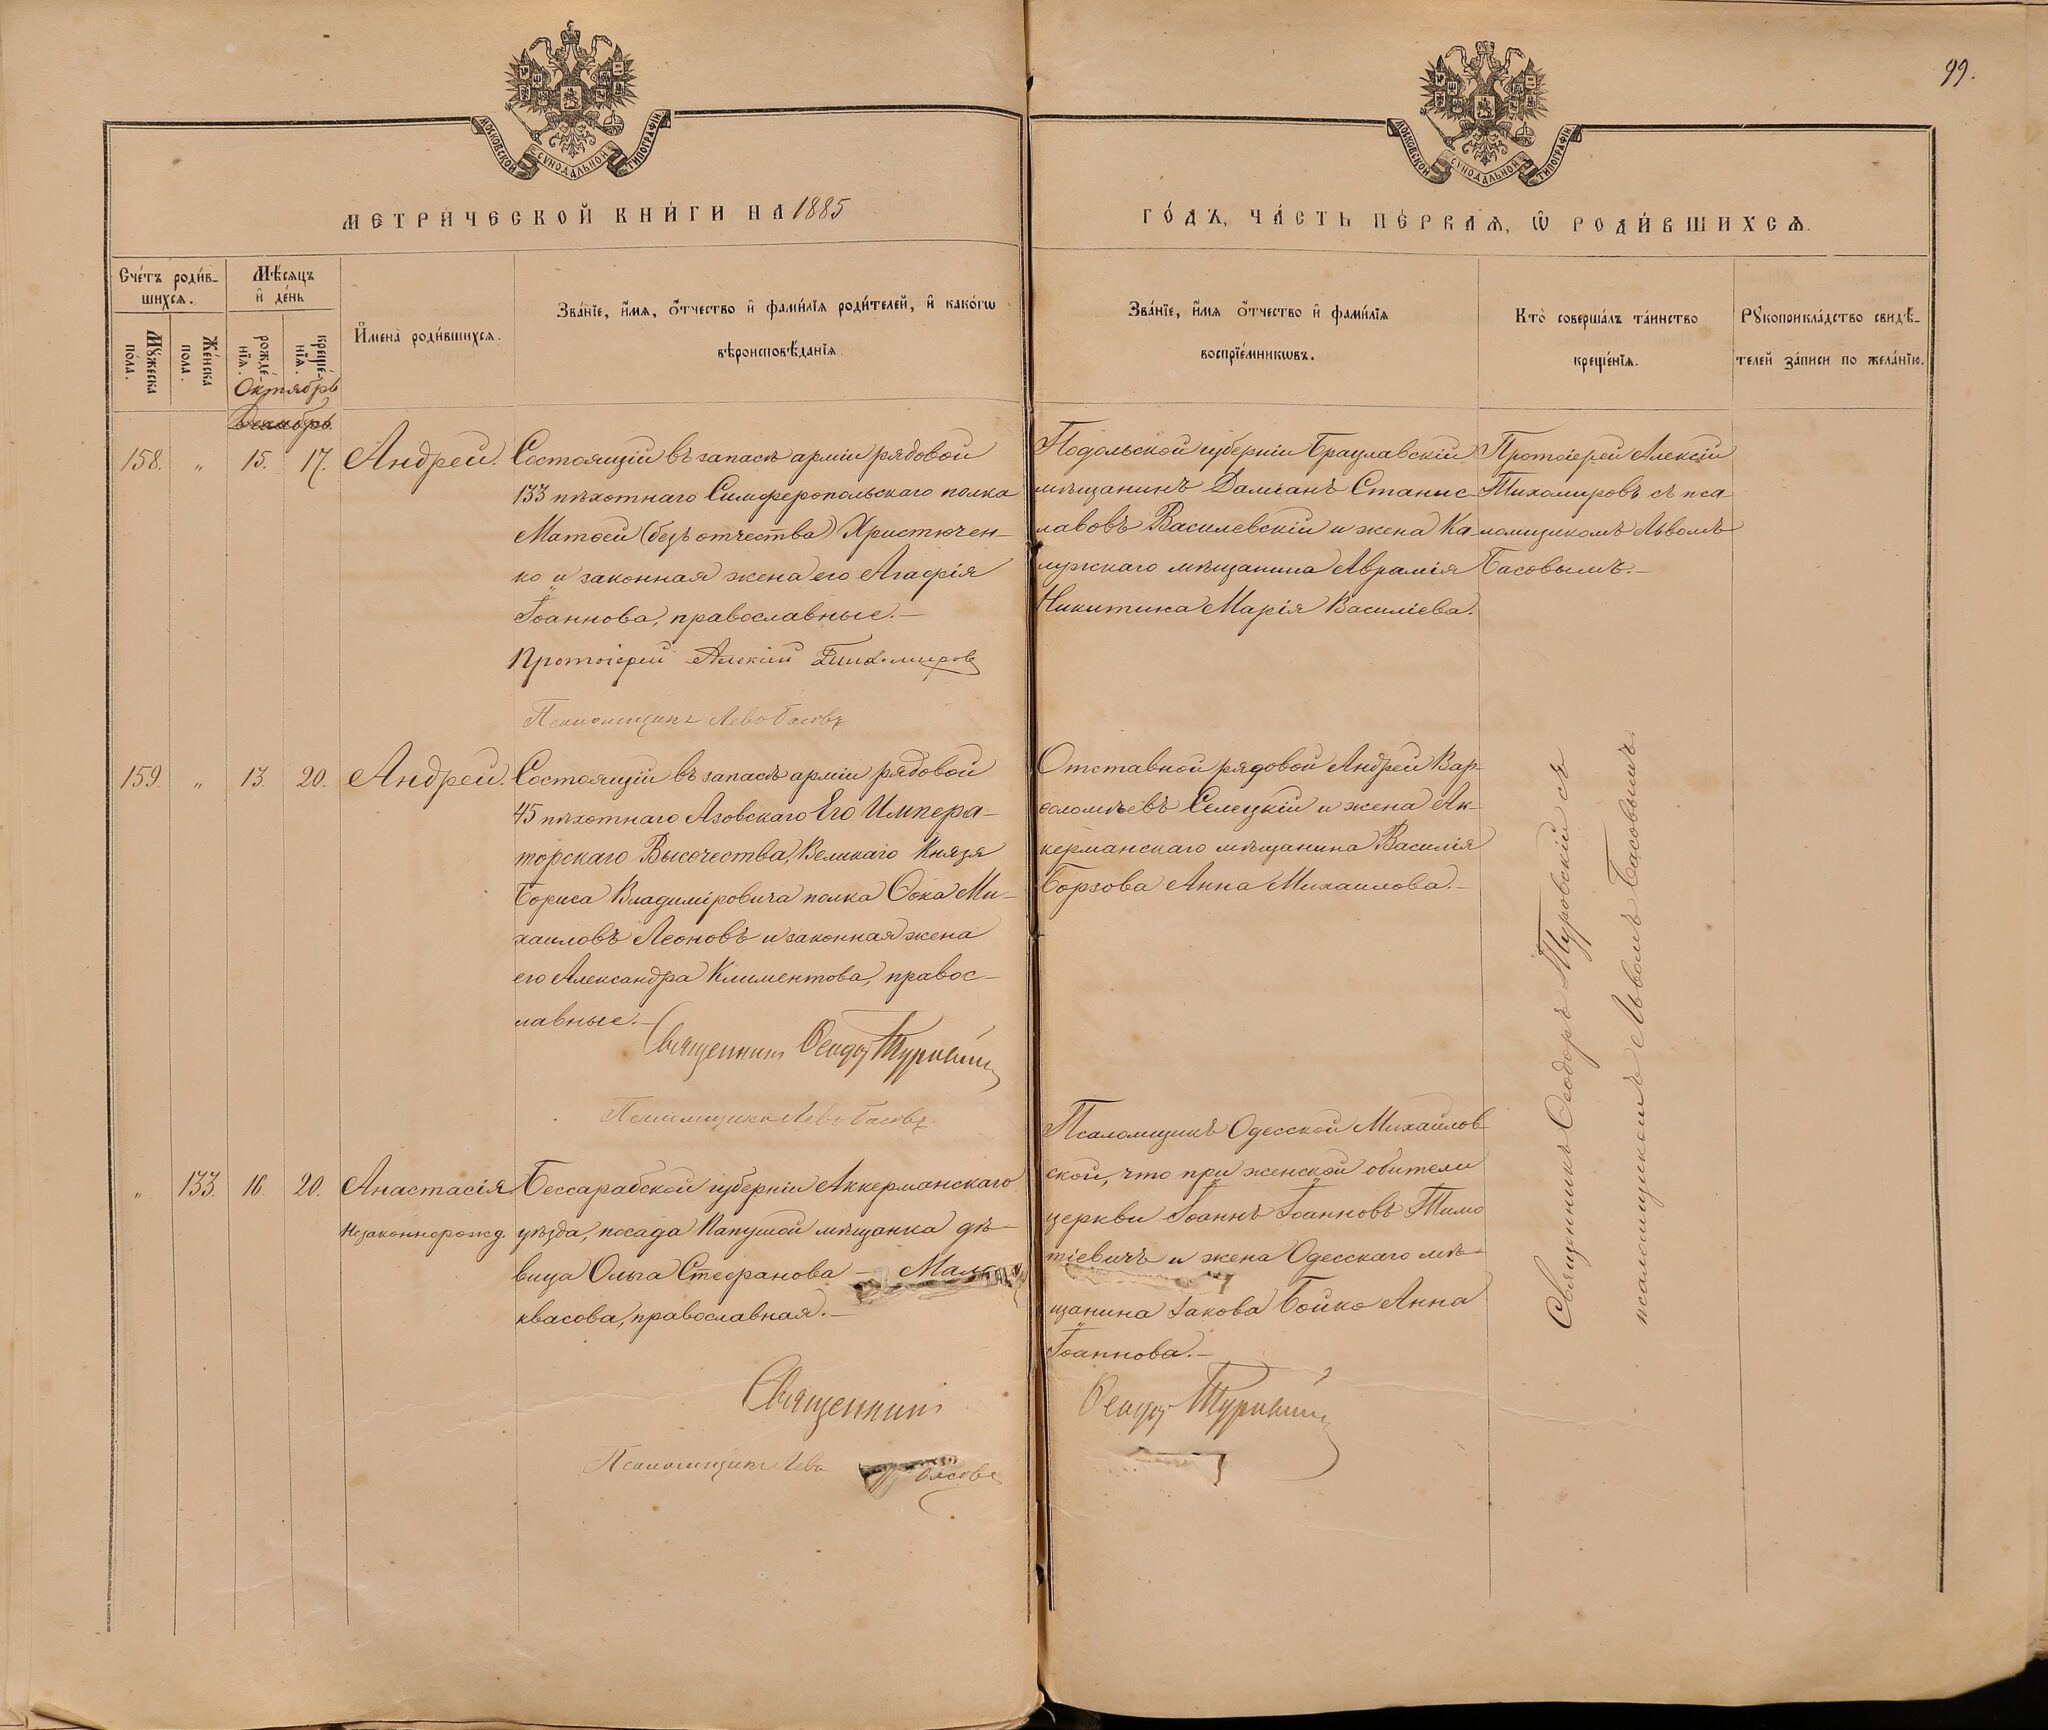 99.
МОСКОВСКОЙ СУНОДАЛЬНОЙ ТИПОГРАФІИ
МОСКОВСКОЙ СУНОДАЛЬНОЙ ТИПОГРАФІИ
МЕТРИ́ЧЕСКОЙ КНИ́ГИ НА 1885
ГО́ДЪ, ЧА́СТЬ ПЕ́РВАЯ, Ѿ РОДИ́ВШИХСЯ.
Счетъ роди́в-
шихся.
Мѣ́сяцъ
и҆ де́нь
Мужеска по́ла.
Же́нска пола.
рожде́нїя.
креще́нїя.
И҆мена̀ роди́вшихся.
Зва́нїе, и҆́мя, ѻ҆́тчество и҆ фами́лїя роди́телей, и҆ како́гѡ
вѣроисповѣ́данїя.
Зва́нїе, и҆́мя ѻ҆́тчество и҆ фами́лїя
воспрїе́мникѡвъ.
Кто̀ соверша́лъ та́инство
креще́нїя.
Рꙋкоприкла́дство свидѣ́-
телей за́писи по жела́нїю.
Октябрь
Декабрь
158. „ 15. 17. Андрей.
Состоящій въ запасѣ арміи рядовой
133 пѣхотнаго Симферопольскаго полка
Матѳей (безъ отчества) Христючен-
ко и законная жена его Агафія
Іоаннова, православные.—
Протоіерей Алексій Тихомировъ
Псаломщикъ Левъ Басовъ
Подольской губерніи Брацлавскій
мѣщанинъ Даміанъ Станис-
лавовъ Василевскій и жена Ка-
лужскаго мѣщанина Аврамія
Никитина Марія Василіева.
Протоіерей Алексій
Тихомировъ съ пса-
ломщикомъ Львомъ
Басовымъ.—
159. „ 13. 20. Андрей.
Состоящій въ запасѣ арміи рядовой
45 пѣхотнаго Азовскаго Его Импера-
торскаго Высочества, Великаго Князя
Бориса Владиміровича полка Ѳока Ми-
хаиловъ Леоновъ и законная жена
его Александра Климентова, правос-
лавные.—
Священникъ Ѳеодоръ Туровскій
Псаломщикъ Левъ Басовъ
Отставной рядовой Андрей Вар-
ѳоломѣевъ Селецкій и жена Ак-
керманскаго мѣщанина Василія
Борзова Анна Михаилова.—
Священникъ Ѳеодоръ Туровскій съ
псаломщикомъ Львомъ Басовымъ.
„ 133. 16. 20. Анастасія
Незаконнорожд.
Бессарабской губерніи Аккерманскаго
уѣзда, посада Папушой мѣщанка дѣ-
вица Ольга Стефанова —
квасова, православная.—
Священникъ
Псаломщикъ Левъ Басовъ
Псаломщикъ Одесской Михайлов-
ской, что при женской обители
церкви Іоаннъ Іоанновъ Тимо
тіевичъ и жена Одесскаго мѣ-
щанина Іакова Бойко Анна
Іоаннова.—
Ѳеодоръ Туровскій